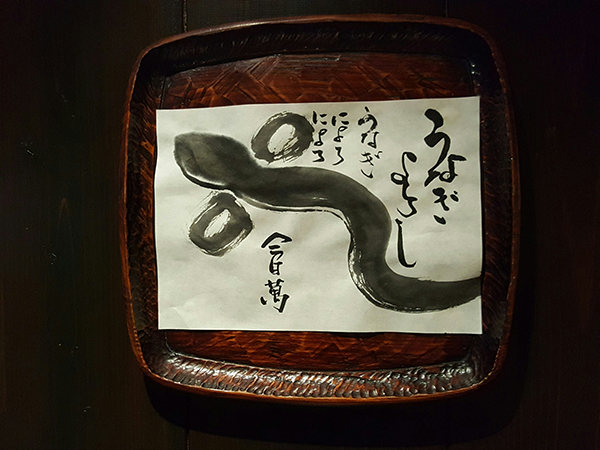 うなぎ
よろし
うなぎ
にょろ
にょろ
百萬